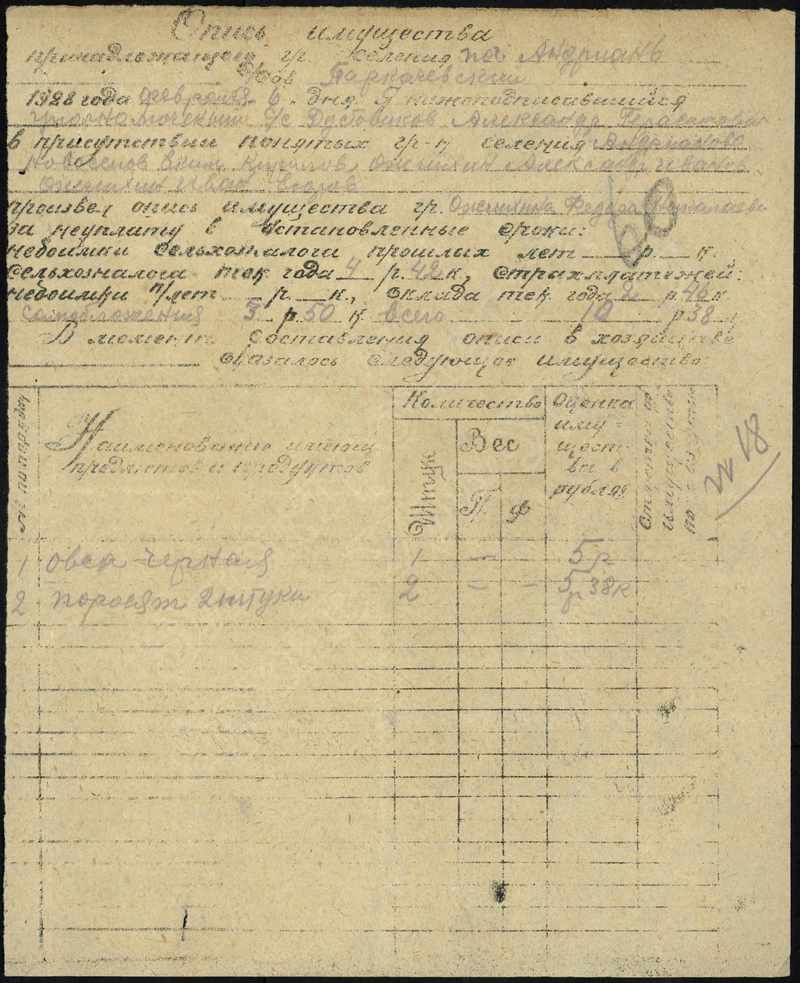 Опись имущества
принадлежащего гр. селения на Андриань
с/сов Паркачевский
1928 года февраля 6 дня Я нижеподписавшийся
уполномоченный с/с Достовалов Александр
в присутствии понятых гр-н селения Андрианово
Новоселов Еким Кирилов, Ожигихин Александр Иванов
Иван
произвел опись имущества гр. Федора
за неуплату в установленные сроки:
недоимки сельхозналога прошлых лет р. к.
сельхозналога тек года 4 р. 42 к, страхплатежей:
недоимки п/лет р. к., оклада тек года 2 р 46 к
самобложения 3 р. 50 к всего 10 р 38 к
В момент составления описи в хозяйстве
оказалось следующее имущество:
60
№ по порядку
Наименование имеющ
предметов и продуктов
Количество
Штук
Вес
П
Ф
Оценка иму-
щест-
ва в
рублях
Отметка об
имуществе
по
№ 18
1 овса черная 1 — 5 р
2 поросят 2 штуки 2 — — 5 р 38 к